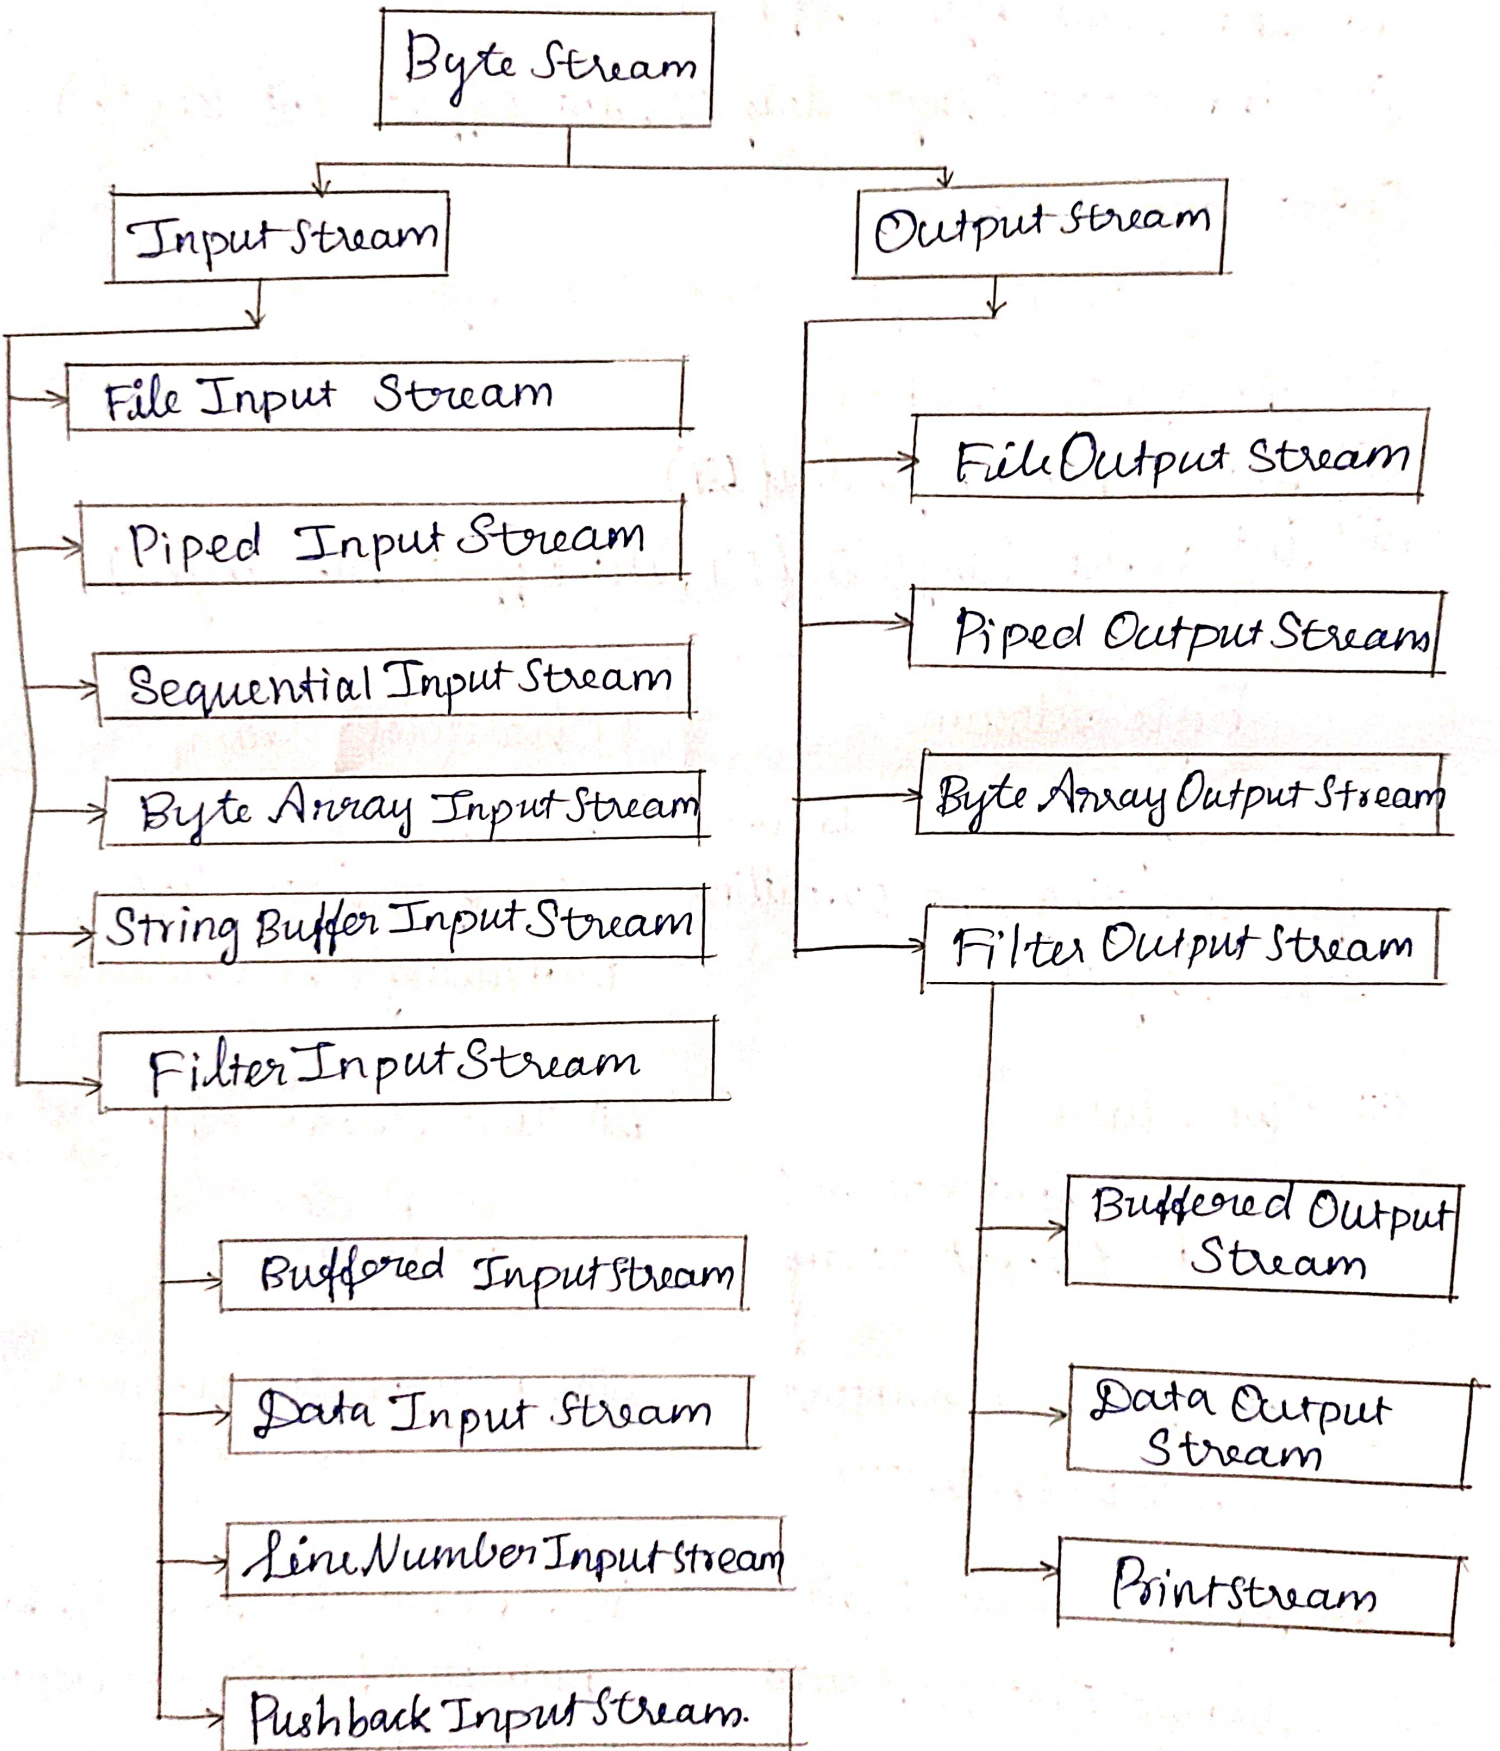 Byte Stream
Input Stream
Output Stream
File Input Stream
Piped Input Stream
Sequential Input Stream
Byte Array Input Stream
String Buffer Input Stream
Filter Input Stream
Buffered Input Stream
Data Input Stream
Line Number Input Stream
Pushback Input Stream.
File Output Stream
Piped Output Stream
Byte Array Output Stream
Filter Output Stream
Buffered Output
Stream
Data Output
Stream
Printstream